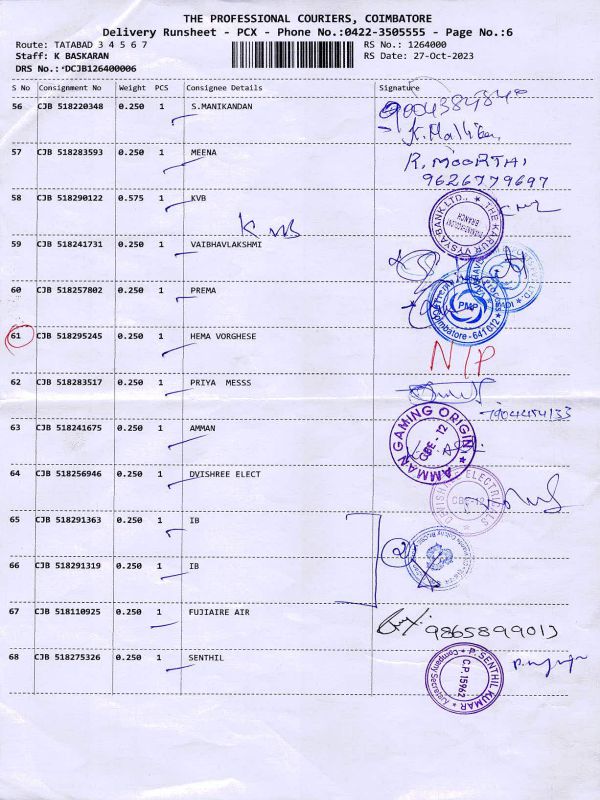 THE PROFESSIONAL COURIERS, COIMBATORE
Delivery Runsheet - PCX - Phone No.:0422-3505555 - Page No.:6
Route: TATABAD 3 4 5 6 7 RS No.: 1264000
Staff: K BASKARAN RS Date: 27-Oct-2023
DRS No.:*DCJB126400006
S No Consignment No Weight PCS Consignee Details Signature
56 CJB 518220348 0.250 1 S.MANIKANDAN
57 CJB 518283593 0.250 1 MEENA R. MOORTHI
9626779697
58 CJB 518290122 0.575 1 KVB THE KARUR VYSYA BANK LTD., BRANCH
K VB
59 CJB 518241731 0.250 1 VAIBHAVLAKSHMI
60 CJB 518257802 0.250 1 PREMA PMP Coimbatore - 641 012
61 CJB 518295245 0.250 1 HEMA VORGHESE N/P
62 CJB 518283517 0.250 1 PRIYA MESSS 7904454133
63 CJB 518241675 0.250 1 AMMAN AMMAN GAMING ORIGIN CBE - 12
64 CJB 518256946 0.250 1 DVISHREE ELECT ELECTRICALS CBE-12
65 CJB 518291363 0.250 1 IB
66 CJB 518291319 0.250 1 IB 2
67 CJB 518110925 0.250 1 FUJIAIRE AIR 9865899013
68 CJB 518275326 0.250 1 SENTHIL P. SENTHIL KUMAR C.P. 15962 Company Secretary